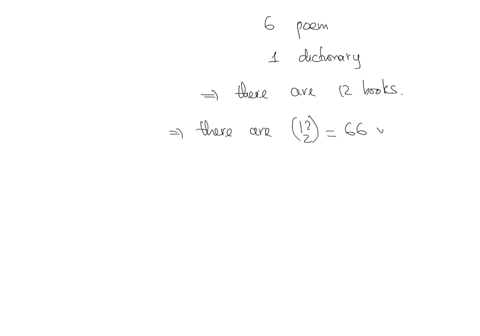 6 poem
1 dictionary
⇒ there are 12 books.
⇒ there are (12 2) = 66